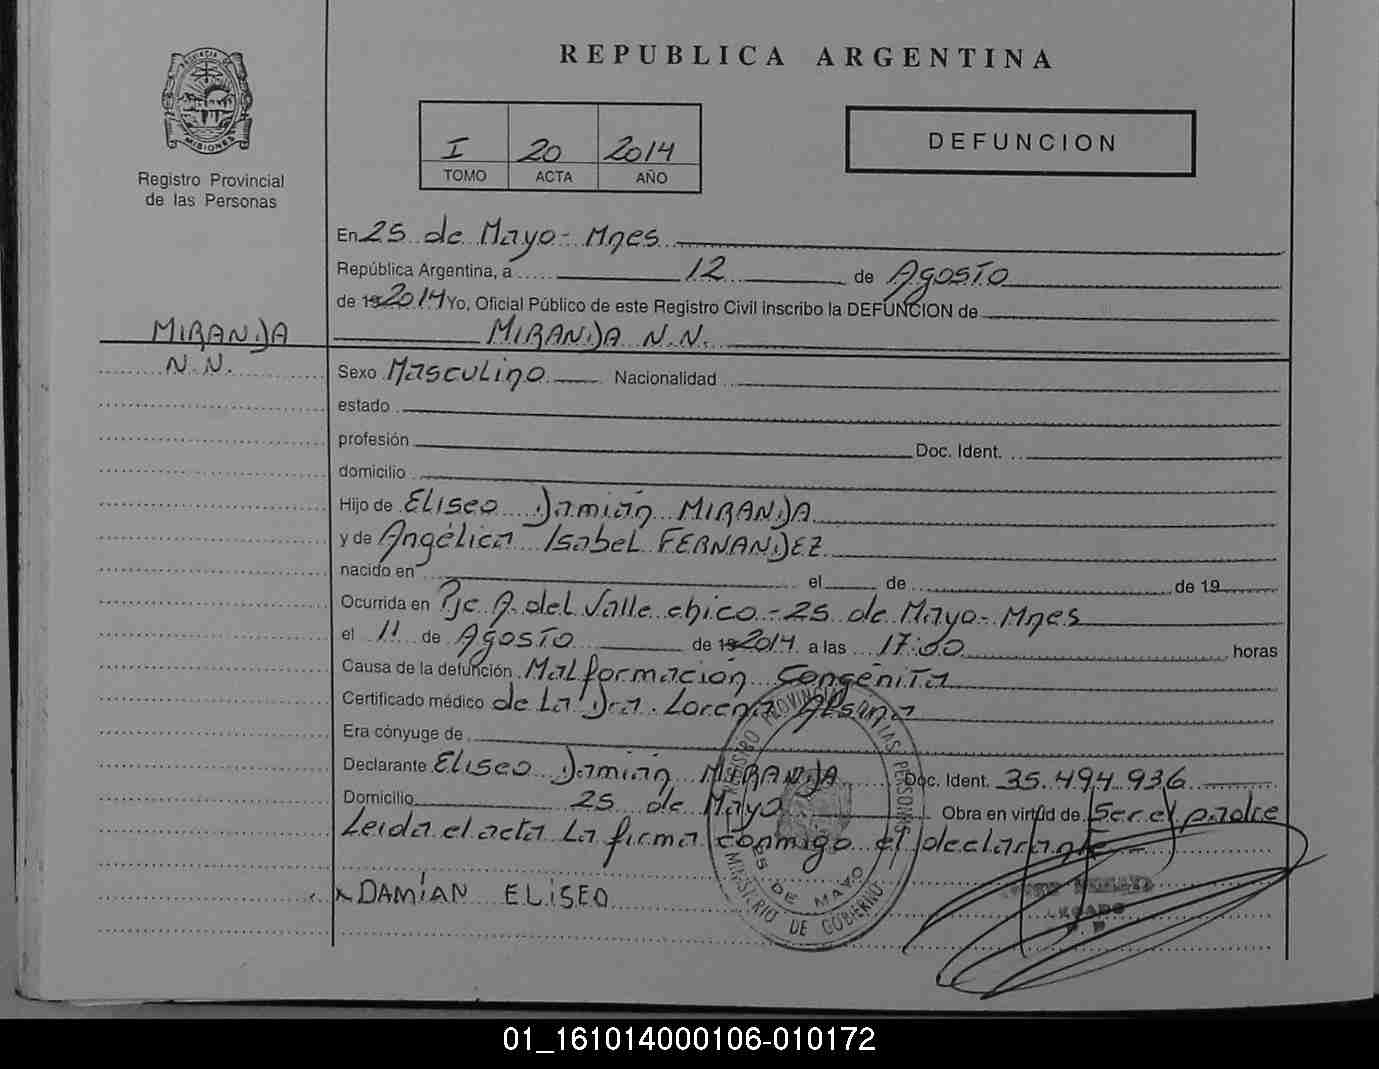 REPUBLICA ARGENTINA
PROVINCIA DE MISIONES
Registro Provincial
de las Personas
I 20 2014
TOMO ACTA AÑO
DEFUNCION
En 25 de Mayo - Mnes
República Argentina, a 12 de Agosto
de 19 2014 Yo, Oficial Público de este Registro Civil inscribo la DEFUNCION de
MIRANDA N.N.
MIRANDA
N.N.
Sexo Masculino Nacionalidad
estado
profesión Doc. Ident.
domicilio
Hijo de Eliseo Damián MIRANDA
y de Angélica Isabel FERNANDEZ
nacido en el de de 19
Ocurrida en Pje A. del Valle chico - 25 de Mayo - Mnes
el 11 de Agosto de 19 2014 a las 17:00 horas
Causa de la defunción Malformación Congénita
Certificado médico de La Dra. Lorena
Era cónyuge de
Declarante Eliseo Damián MIRANDA Doc. Ident. 35.494.936
Domicilio 25 de Mayo Obra en virtud de Ser el padre
Leida el acta La firma conmigo el declarante
x DAMÍAN ELISEO
REGISTRO PROVINCIAL DE LAS PERSONAS
25 DE MAYO
MINISTERIO DE GOBIERNO
01_161014000106-010172